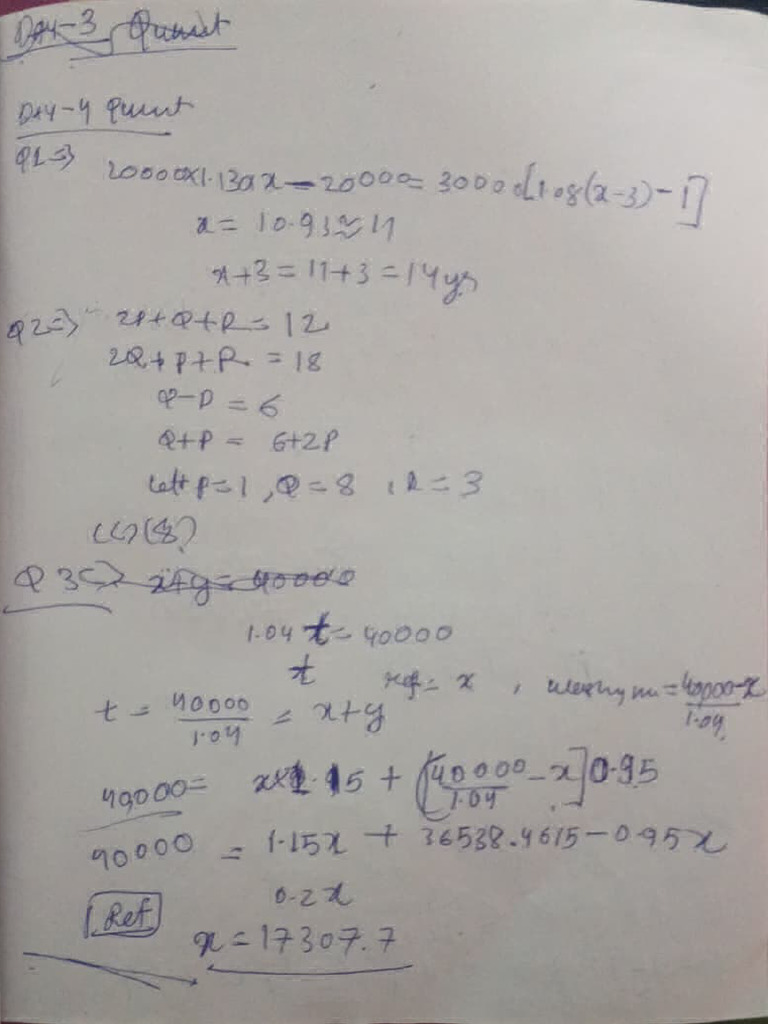 DAY-3 Quant
DAY-4 Quant
Q1=> 20000x1.130xx-20000=30000[1.08(x-3)-1]
x = 10.93≈11
x+3=11+3=14yrs
Q2=> 2P+Q+R=12
2Q+P+R=18
Q-P=6
Q+P= 6+2P
Let P=1, Q=8, R=3
(C)(8)
Q3=> x+y=40000
1.04 t=40000
t
t = 40000/1.04 = x+y
ref = x, = 40000-x/1.04
40000= x×1.15 + [40000/1.04 - x]0.95
40000 = 1.15x + 36538.4615-0.95x
0.2x
Ref
x=17307.7